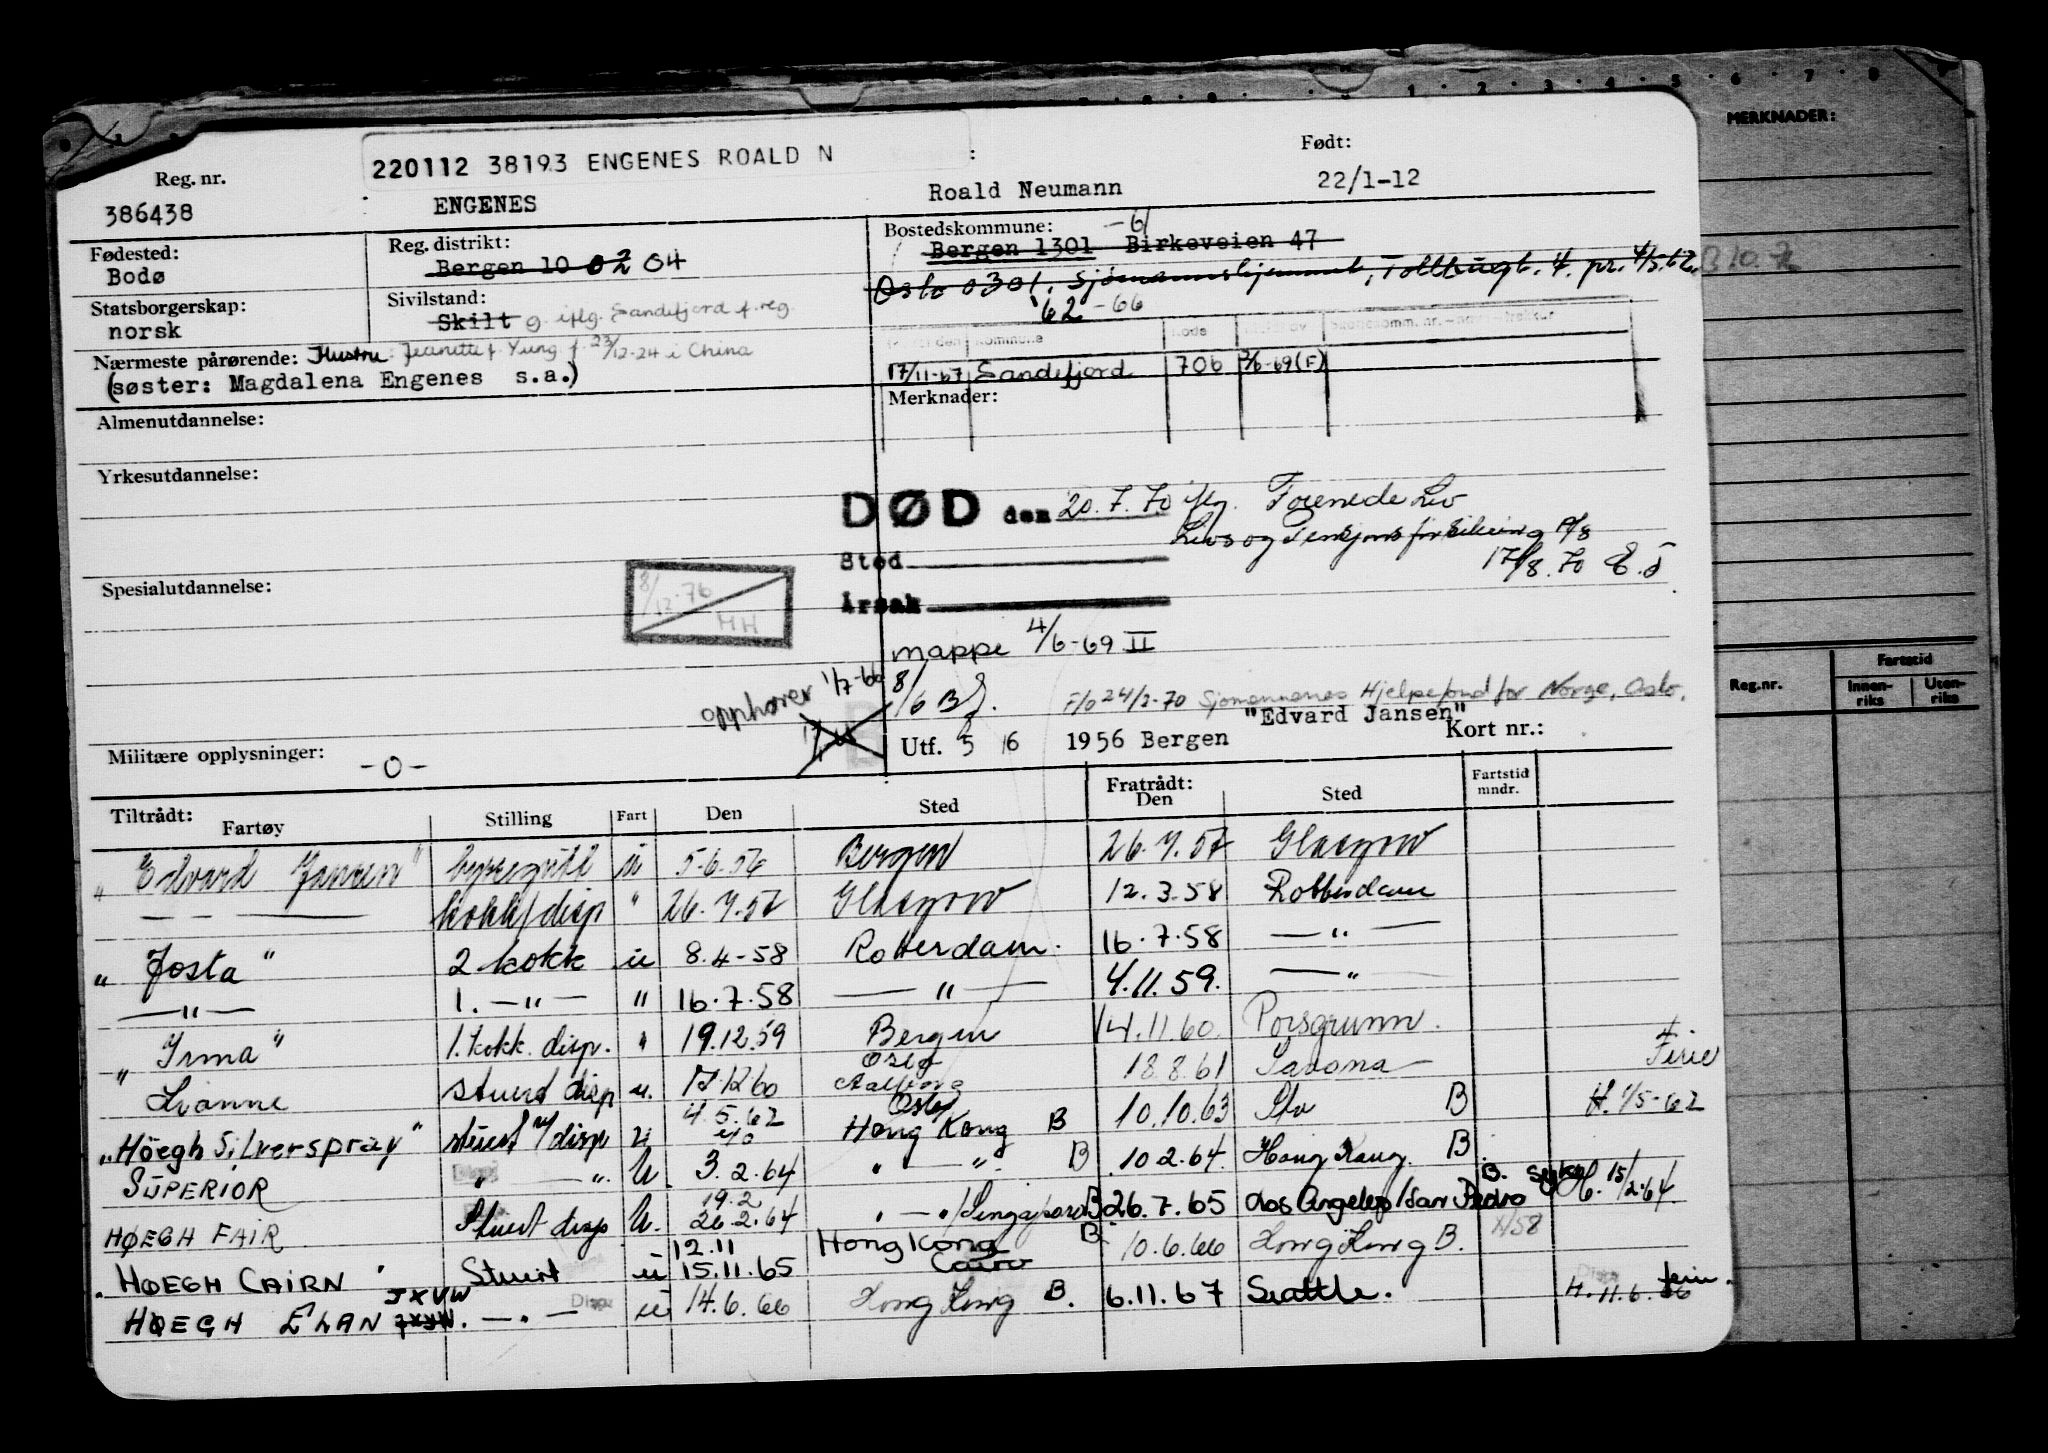 MERKNADER:
220112 38193 ENGENES ROALD N
Født:
Reg. nr.
386438
ENGENES
Roald Neumann
22/1-12
Fødested:
Bodø
Reg. distrikt:
Bergen 10 02 04
Bostedskommune: -61
Bergen 1301 Birkeveien 47
Oslo 0301, Sjømannshjemmet, Tollbugt. 4. pr. 4/5.62.
'62-66
Statsborgerskap:
norsk
Sivilstand:
Skilt g. iflg. Sandefjord f.reg.
Kommune
Kode
Nærmeste pårørende: Hustru: Jeanette f. Yung f. 23/12-24 i China
(søster: Magdalena Engenes s.a.)
17/11-67 Sandefjord 706 3/6-69(F)
Merknader:
Almenutdannelse:
Yrkesutdannelse:
DØD den 20.7.70 iflg. Forenede Liv
Livs og Pensjonsforsikring A/S
17/8.70
Sted
Årsak
Spesialutdannelse:
8/12-76
HH
mappe 4/6-69 II
opphører 1/7-66
F/6 24/2-70 Sjømennenes Hjelpefond for Norge, Oslo.
"Edvard Jansen"
Utf. 5 6 1956 Bergen
Kort nr.:
Militære opplysninger: -0-
Reg.nr.
Fartstid
Innen-riks
Uten-riks
Tiltrådt:
Fartøy
Stilling
Fart
Den
Sted
Fratrådt:
Den
Sted
Fartstid mndr.
"Edvard Jansen" byssegutt u 5-6.56 Bergen 26.7.57 Glasgow
— " — kokk/disp " 26.7.57 Glasgow 12.3.58 Rotterdam
"Josta" 2 kokk u 8.4-58 Roterdam. 16.7.58 — " —
— " — 1. — " — " 16.7.58 — " — 4.11.59. — " —
"Irma" 1. kokk disp. " 19.12.59 Bergen 14.11.60. Porsgrunn.
Lianne stuert disp u. 17.12.60 Oslo Aalborg 18.8.61 Savona Ferie
"Höegh Silverspray" stuert m/disp u 4.5.62 Oslo Hong Kong B 10.10.63 B H. 1/5-62
SUPERIOR " — " U. 3.2.64 " — " B 10.2.64. Hong Kong. B
HØEGH FAIR Stuert disp U. 19.2 26.2.64 " — " /Singapore B 26.7.65 Los Angeles/San Pedro B. syk H. 15/2-64
HØEGH CAIRN Stuert u 12.11 15.11.65 Hong Kong Cairo B. 10.6.66 Hong Kong B.
HØEGH ELAN JXVW — " — u 14.6.66 Hong Kong B. 6.11.67 Seattle. H. 11.6.66 ferie.